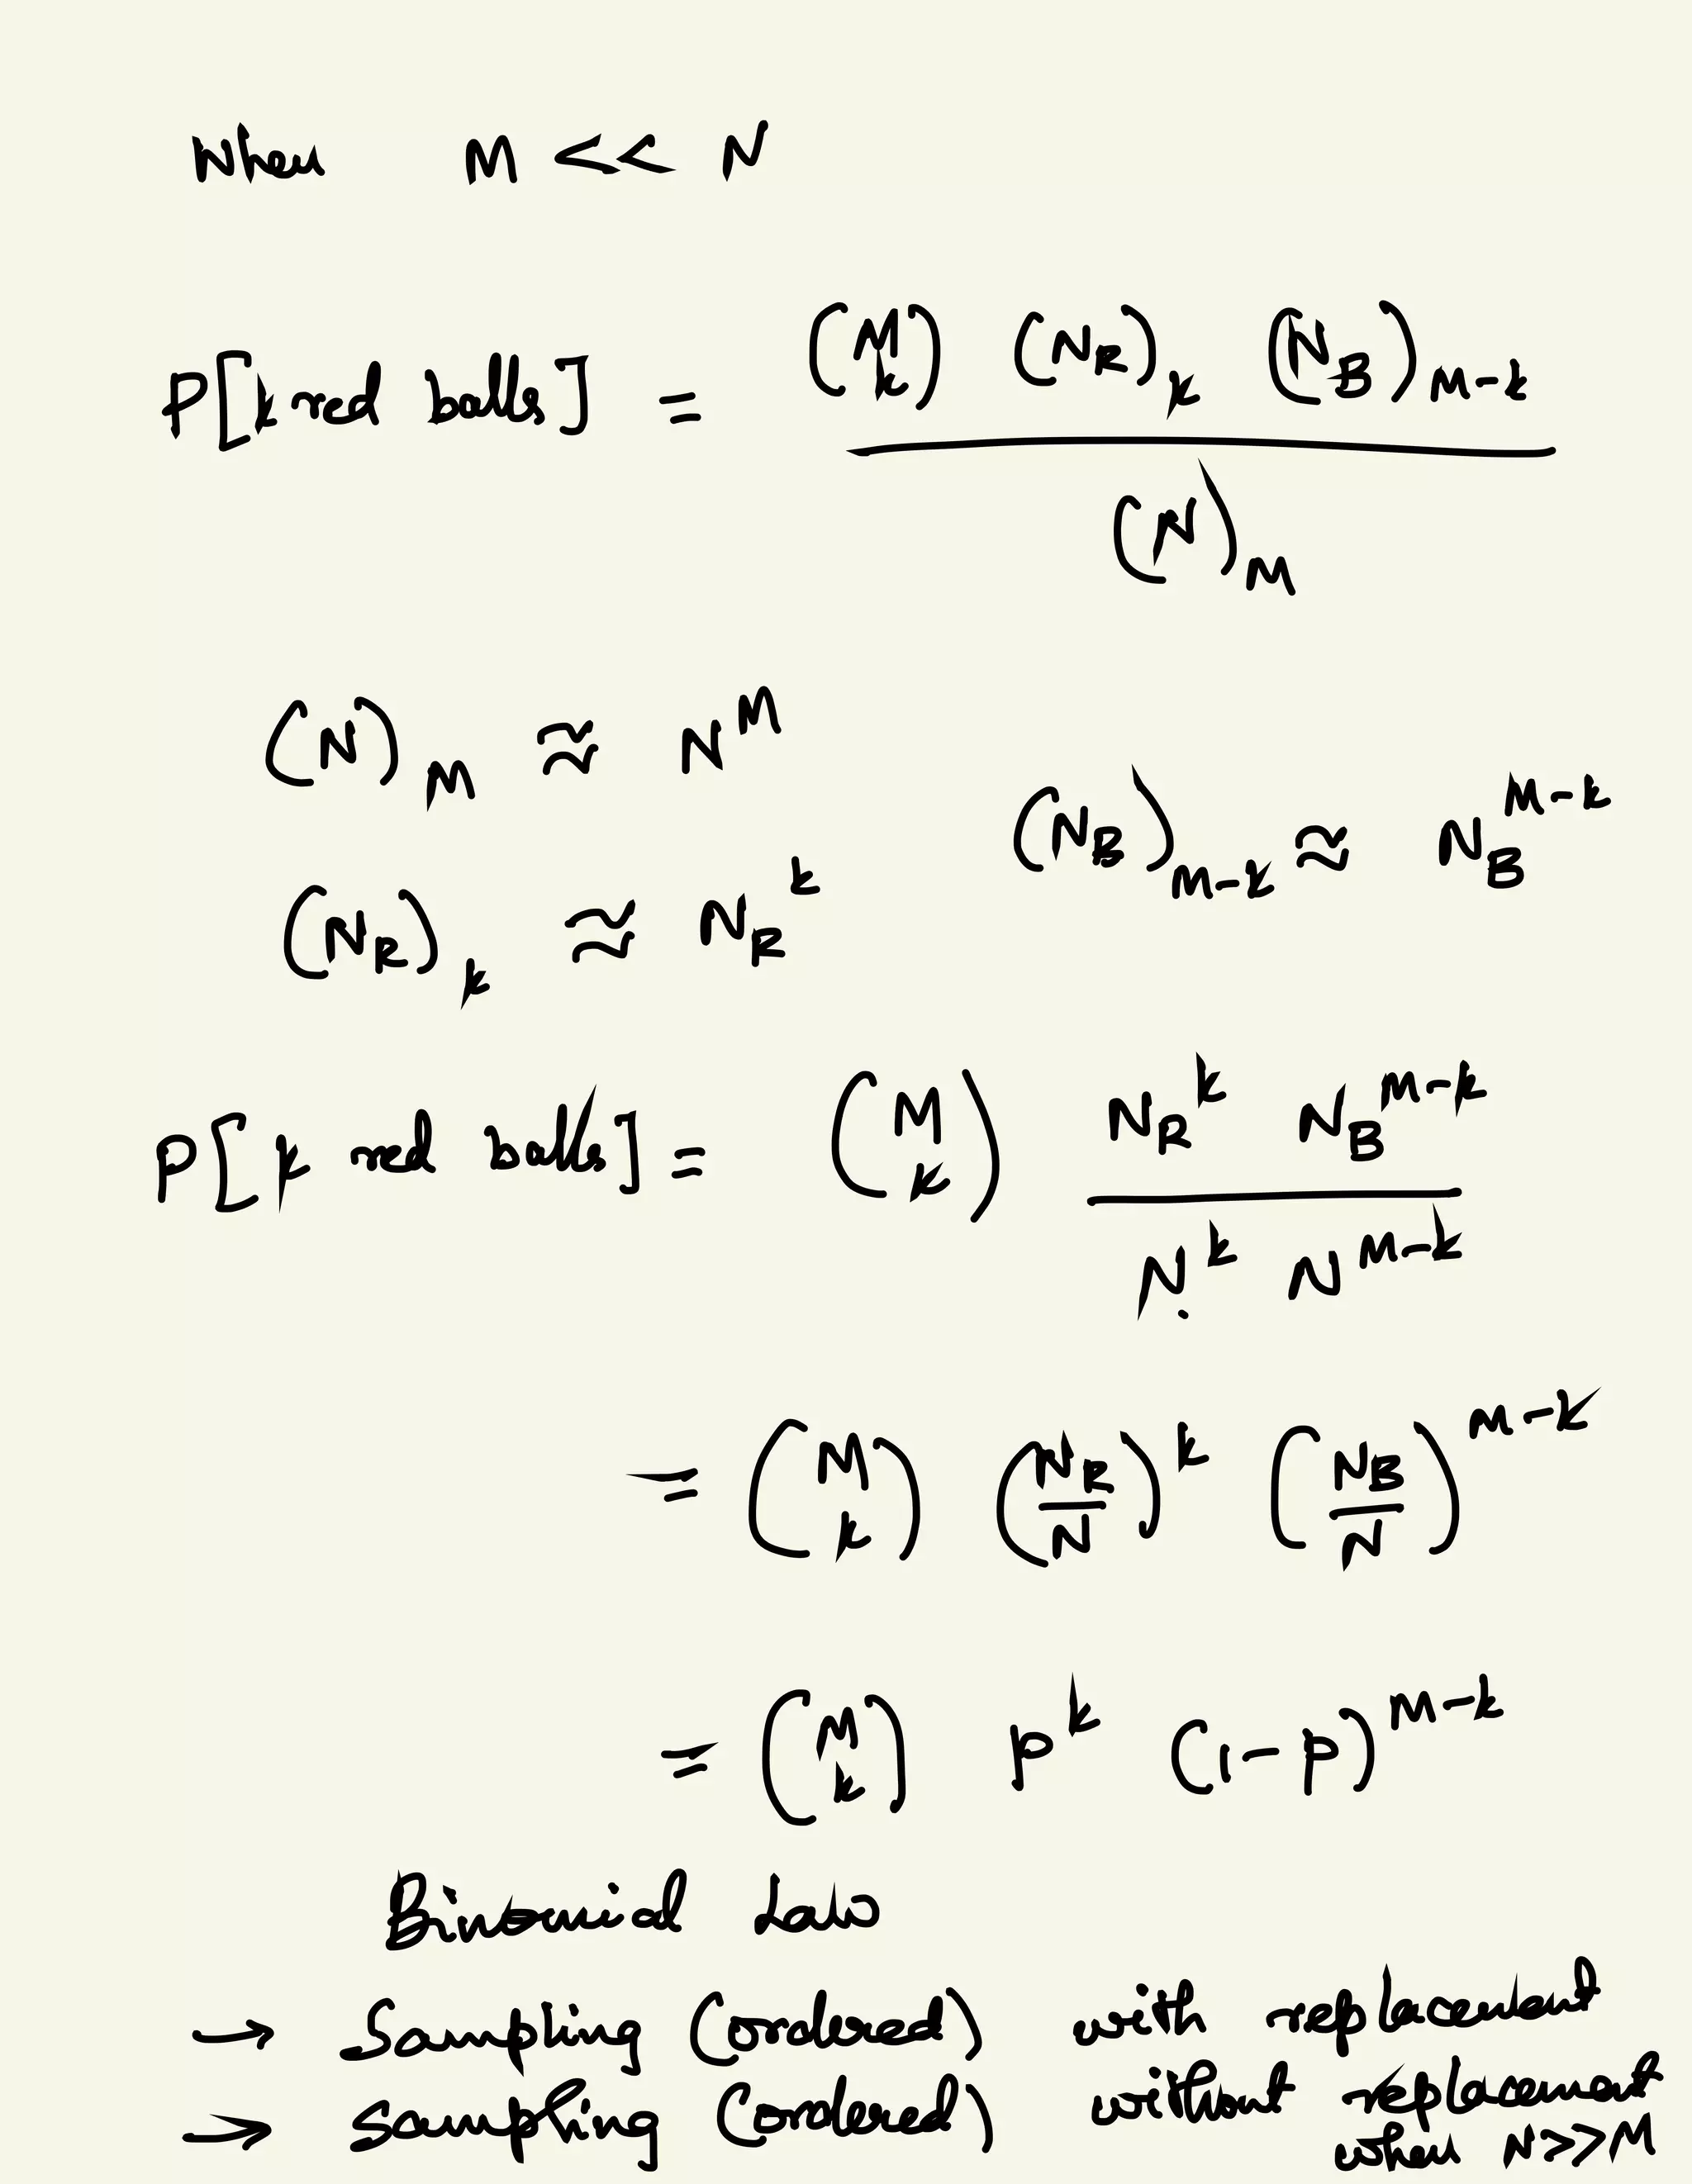 When M << N
P[k red balls] = \frac{\binom{M}{k} (N_R)_k (N_B)_{M-k}}{(N)_M}
(N)_M ≈ N^M
(N_B)_{M-k} ≈ N_B^{M-k}
(N_R)_k ≈ N_R^k
P[k red balls] = \binom{M}{k} \frac{N_R^k N_B^{M-k}}{N^k N^{M-k}}
= \binom{M}{k} \left(\frac{N_R}{N}\right)^k \left(\frac{N_B}{N}\right)^{M-k}
= \binom{M}{k} p^k (1-p)^{M-k}
Binomial Law
→ Sampling (ordered) with replacement
→ Sampling (ordered) without replacement
when N>>M